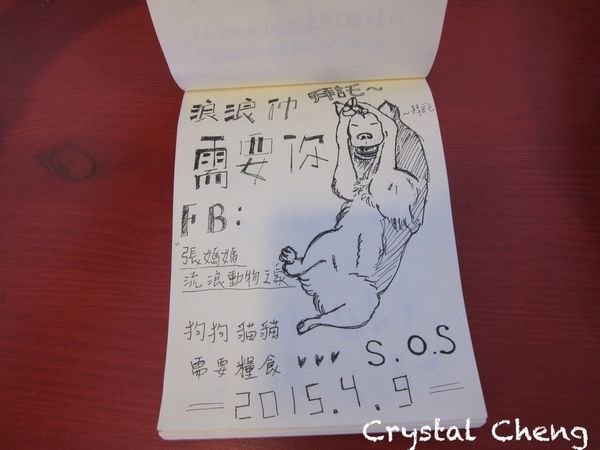 浪浪们
拜託~
~拜託
需要你
FB:
張媽媽
流浪動物之家
狗狗貓貓
需要糧食 ♥♥♥ S.O.S
2015.4.9
Crystal Cheng